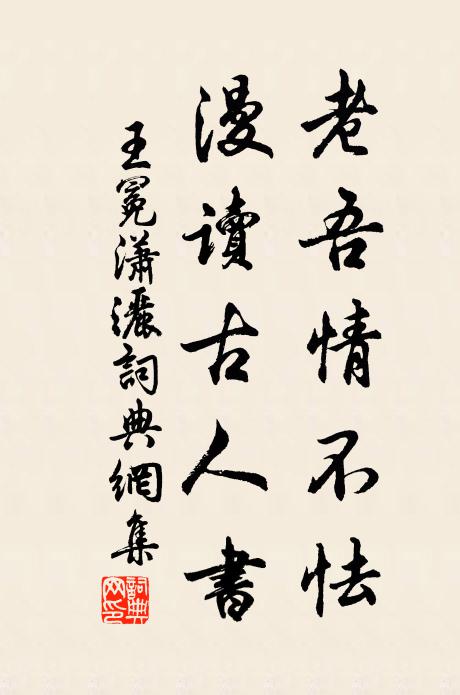 老吾情不怯
漫讀古人書
王冕瀟灑詞典網集
詞典網印